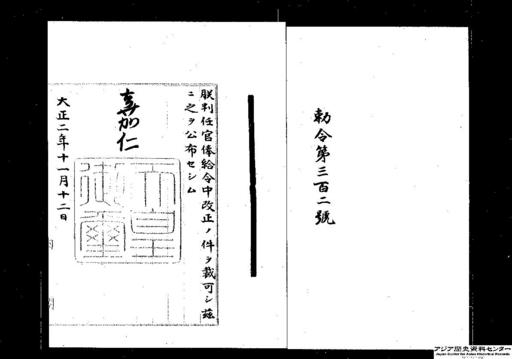 勅令第三百二號
朕判任官俸給令中改正ノ件ヲ裁可シ茲
ニ之ヲ公布セシム
嘉仁
天皇御璽
大正二年十一月十二日
内閣
アジア歴史資料センター
Japan Center for Asian Historical Records